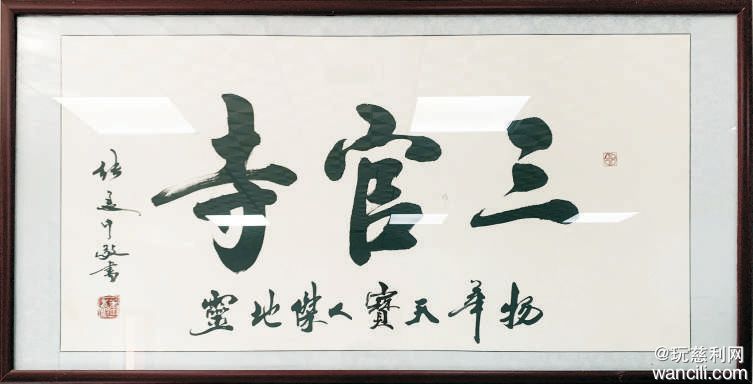 三官寺
物华天寶人傑地靈
敬書
@玩慈利网
wancili.com